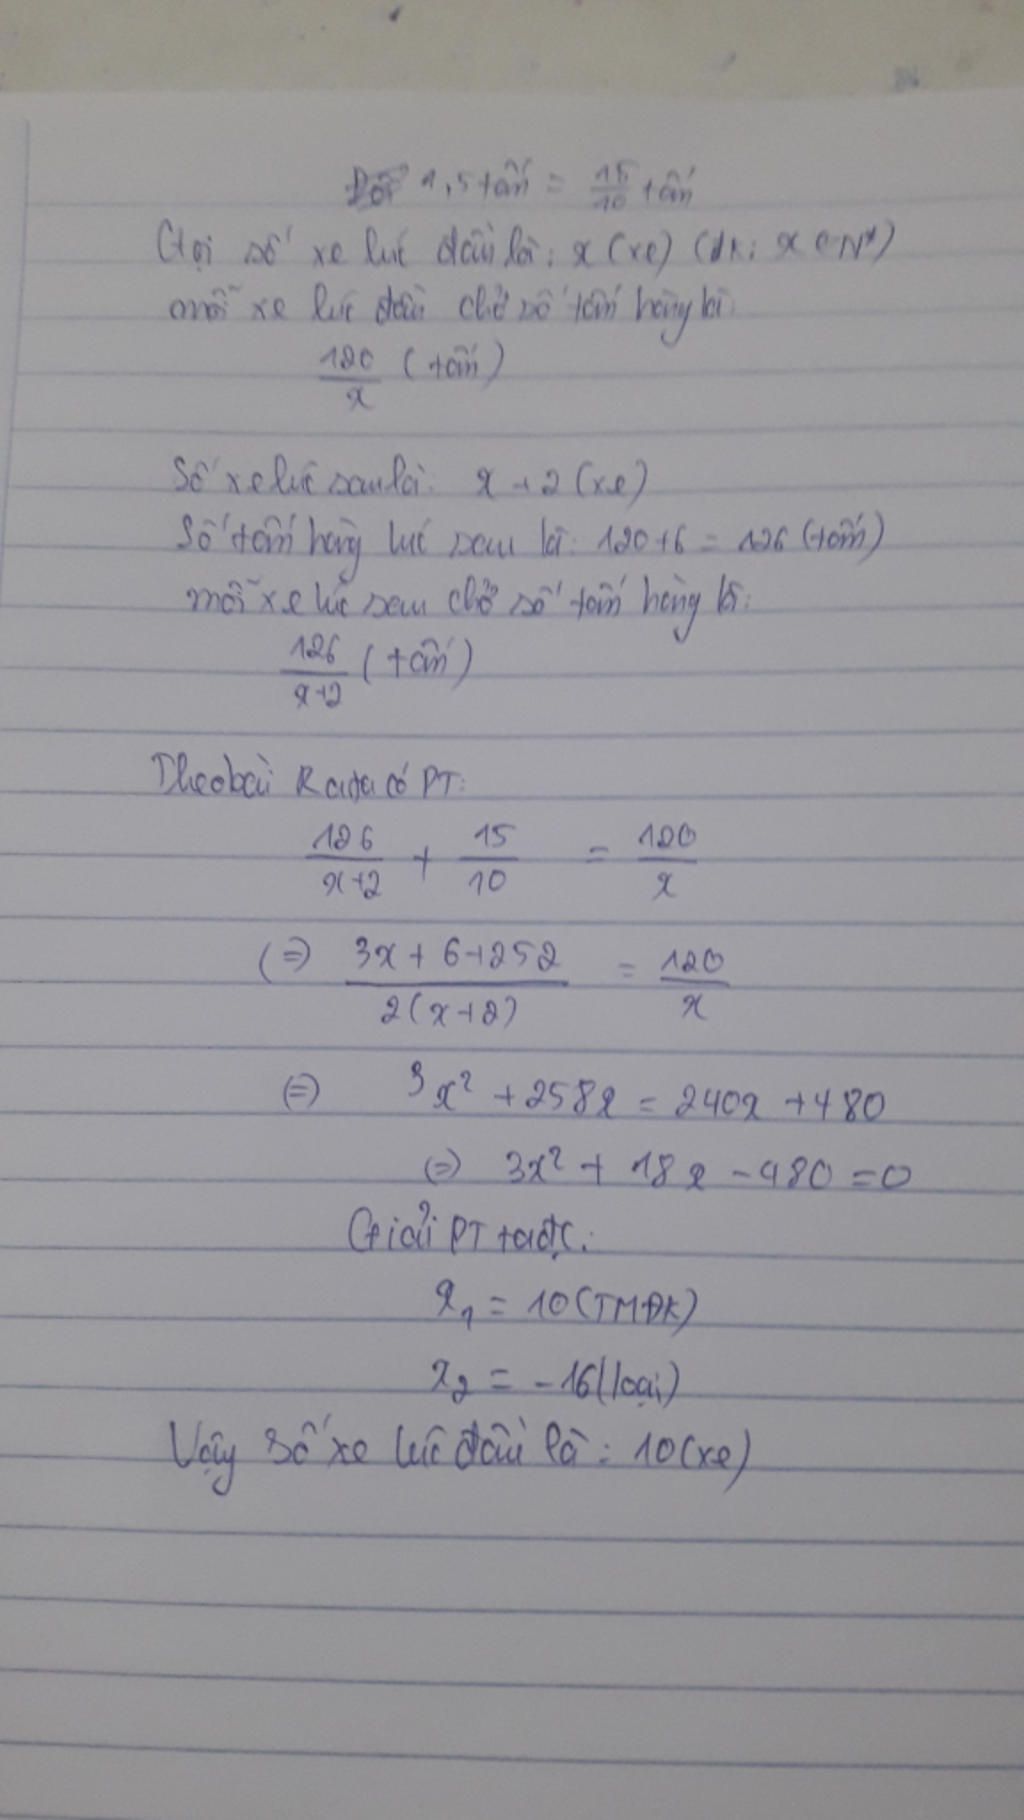 Đổi 1,5 tấn = 15/10 tấn
Gọi số xe lúc đầu là: x (xe) (đk: x ∈ N*)
mỗi xe lúc đầu chở số tấn hàng là:
120/x (tấn)
Số xe lúc sau là: x + 2 (xe)
Số tấn hàng lúc sau là: 120 + 6 = 126 (tấn)
mỗi xe lúc sau chở số tấn hàng là:
126/(x+2) (tấn)
Theo bài Ra ta có PT:
126/(x+2) + 15/10 = 120/x
(=) (3x + 6 + 252)/(2(x+2)) = 120/x
(=) 3x² + 258x = 240x + 480
(=) 3x² + 18x - 480 = 0
Giải PT ta đc:
x₁ = 10 (TMĐK)
x₂ = -16 (loại)
Vậy Số xe lúc đầu là: 10 (xe)